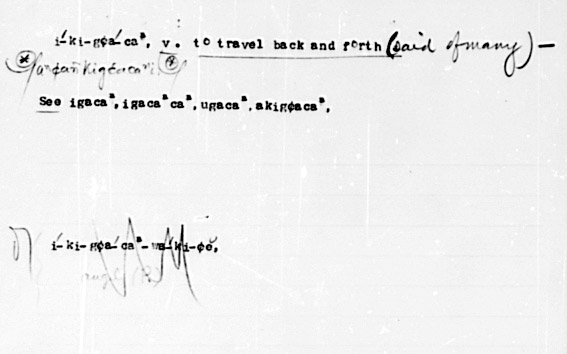 í-ki-g¢á-caⁿ, v. to travel back and forth (said of many) —
See igacaⁿ, igacaⁿcaⁿ, ugacaⁿ, akig¢acaⁿ,
í-ki-g¢á-caⁿ-wá-ki-¢ĕ,